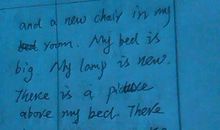 and a new chair in my
room. My bed is
big. My lamp is new.
There is a picture
above my bed. There